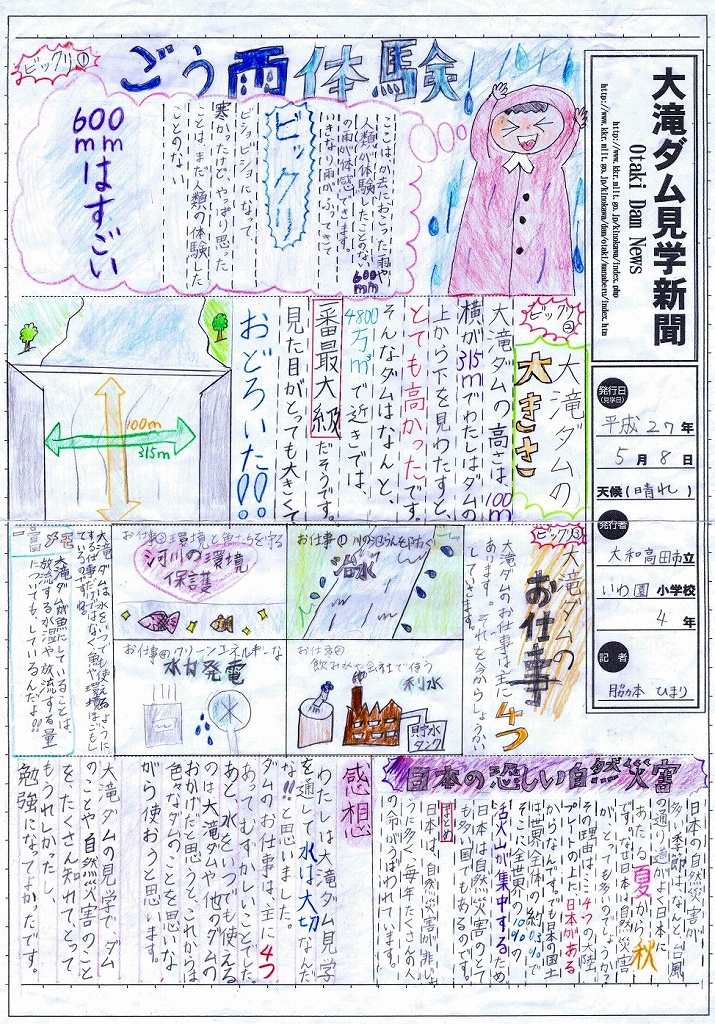 大滝ダム見学新聞
Otaki Dam News
http://www.kkr.mlit.go.jp/kinokawa/index.php
発行日
(見学日)
平成27年
5月8日
天候(晴れ)
発行者
大和高田市立
いわ園小学校
4年
記者
脇本 ひまり
ビックリ①
ごう雨体験
ここは、か去におこった雨や
人類が体験したことのない600mm
の雨が体感できます。
いきなり雨がふってきて
ビックリ
ビショビショになって
寒かったけど、やっぱり思った
ことは、まだ人類の体験した
ことのない
600mmはすごい
ビックリ②
大滝ダムの
大きさ
大滝ダムの高さは、100m
横が315mでわたしはダムの
上から下を見わたすと、
とても高かったです。
そんなダムはなんと、
4800万m³で近きでは、
一番最大級だそうです。
見た目がとっても大きくて
おどろいた!!
100m
315m
ビックリ③
大滝ダムの
お仕事
大滝ダムのお仕事は主に4つ
あります。それを今からしょうかい
していきます。
お仕事① 川のはんらんをふせぐ
治水
お仕事②環境と魚たちを守る
河川の環境
保護
お仕事③
飲み水や会社で使う
利水
貯水
タンク
お仕事④クリーンエネルギーな
水力発電
大滝ダムは水をいつでも使えるように
大滝ダムが魚にしていることは、
放流する水温や放流する量
についても、しているんだよ!!
日本の恐しい自然災害
日本の自然災害が
多い季節は、なんと台風
の通り道がよく日本に
あたる夏から秋
です。なぜ日本は自然災害
がとっても多いのでしょうか?
その理由はここ4つの大陸
プレートの上に日本がある
からなんです。でも日本の国土
は世界全体の約0.3%で
そこに全世界の10%の
活火山が集中するため
日本は自然災害のとて
も多い国でもあるのです。
まとめ
日本は、自然災害が非じょ
うに多く、毎年たくさんの人
の命がうばわれています。
感想
わたしは大滝ダム見学
を通して水は大切なんだ
な!!と思いました。
ダムのお仕事は、主に4つ
あってむずかしいことでした。
あと、水をいつでも使える
のは大滝ダムや他のダムの
おかげだと思うと、これからは
色々なダムのことを思いな
がら使おうと思います。
大滝ダムの見学で、ダム
のことや自然災害のこと
をたくさん知れてとって
もうれしかったし、
勉強になってよかったです。